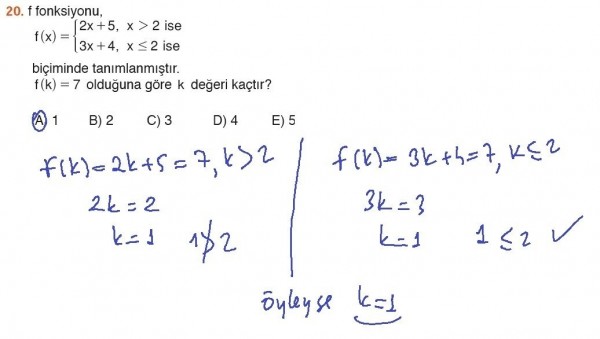 20. f fonksiyonu,
f(x) = { 2x + 5, x > 2 ise
3x + 4, x ≤ 2 ise
biçiminde tanımlanmıştır.
f(k) = 7 olduğuna göre k değeri kaçtır?
A) 1 B) 2 C) 3 D) 4 E) 5
f(k) = 2k+5 = 7, k > 2
2k = 2
k = 1 1 ≯ 2
f(k) = 3k+4 = 7, k ≤ 2
3k = 3
k = 1 1 ≤ 2 ✓
öyleyse k = 1